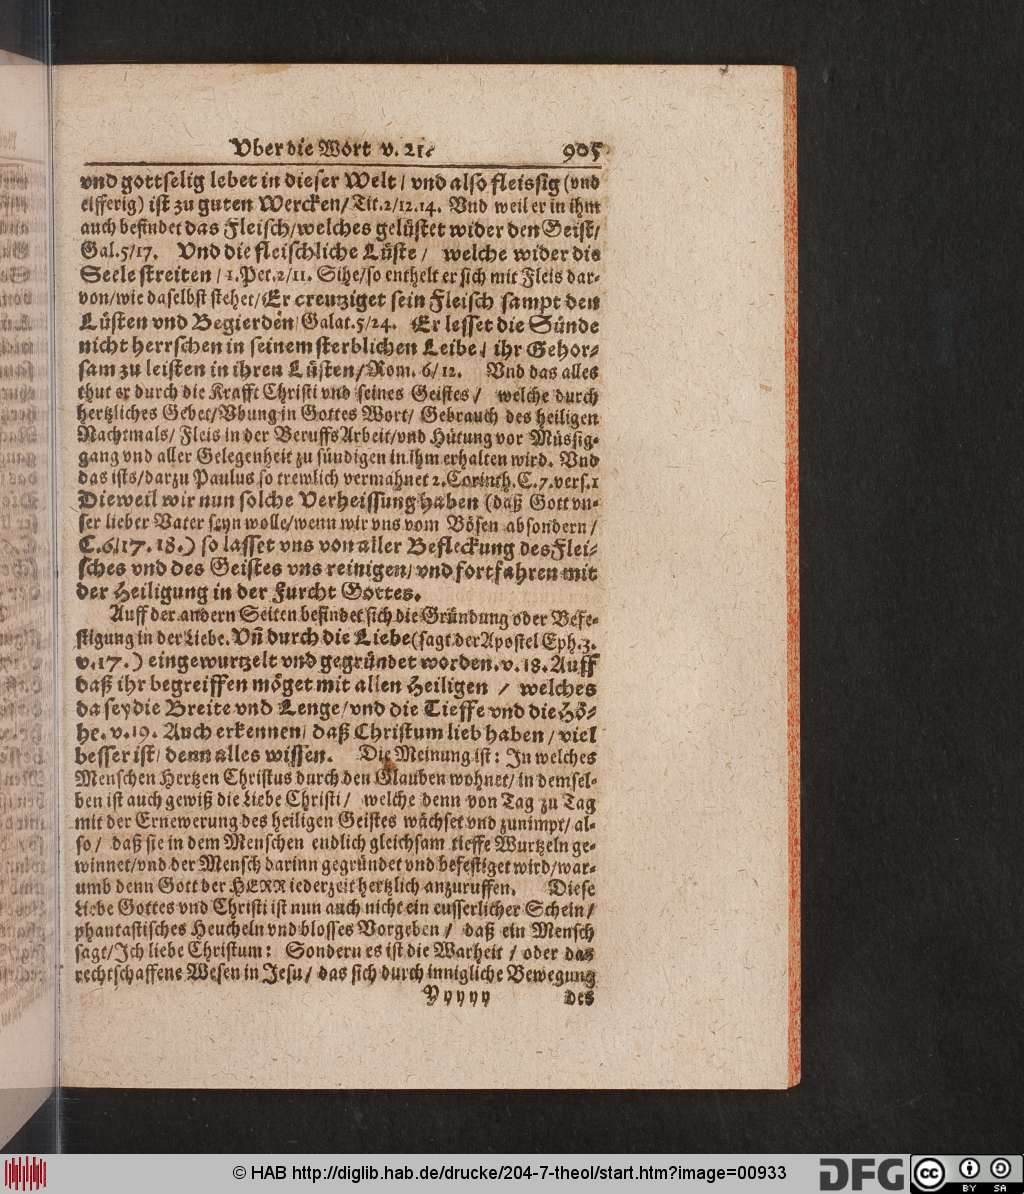 Vber die Wort v. 21. 905
vnd gottselig lebet in dieser Welt / vnd also fleissig (vnd
eifferig) ist zu guten Wercken / Tit. 2/12.14. Vnd weil er in ihm
auch befindet das Fleisch / welches gelüstet wider den Geist /
Gal. 5/17. Vnd die fleischliche Lüste / welche wider die
Seele streiten / 1. Pet. 2/11. Sihe / so enthelt er sich mit Fleis dar-
von / wie daselbst stehet / Er creutziget sein Fleisch sampt den
Lüsten vnd Begierden / Galat. 5/24. Er lesset die Sünde
nicht herrschen in seinem sterblichen Leibe / ihr Gehor-
sam zu leisten in ihren Lüsten / Rom. 6/12. Vnd das alles
thut er durch die Krafft Christi vnd seines Geistes / welche durch
hertzliches Gebet / Vbung in Gottes Wort / Gebrauch des heiligen
Nachtmals / Fleis in der Beruffs Arbeit / vnd Hütung vor Müssig-
gang vnd aller Gelegenheit zu sündigen in ihm erhalten wird. Vnd
das ists / darzu Paulus so trewlich vermahnet 2. Corinth. C. 7. vers. 1
Dieweil wir nun solche Verheissung haben (daß Gott vn-
ser lieber Vater seyn wolle / wenn wir vns vom Bösen absondern /
C. 6/17. 18.) so lasset vns von aller Befleckung des Flei-
sches vnd des Geistes vns reinigen / vnd fortfahren mit
der Heiligung in der Furcht Gottes.
Auff der andern Seiten befindet sich die Gründung oder Befe-
stigung in der Liebe. Vñ durch die Liebe (sagt der Apostel Eph. 3.
v. 17.) eingewurtzelt vnd gegründet worden. v. 18. Auff
daß ihr begreiffen möget mit allen Heiligen / welches
da sey die Breite vnd Lenge / vnd die Tieffe vnd die Hö-
he. v. 19. Auch erkennen / daß Christum lieb haben / viel
besser ist / denn alles wissen. Die Meinung ist: In welches
Menschen Hertzen Christus durch den Glauben wohnet / in demsel-
ben ist auch gewiß die Liebe Christi / welche denn von Tag zu Tag
mit der Ernewerung des heiligen Geistes wächset vnd zunimpt / al-
so / daß sie in dem Menschen endlich gleichsam tieffe Wurtzeln ge-
winnet / vnd der Mensch darinn gegründet vnd befestiget wird / war-
umb denn Gott der HERR iederzeit hertzlich anzuruffen. Diese
Liebe Gottes vnd Christi ist nun auch nicht ein eusserlicher Schein /
phantastisches Heucheln vnd blosses Vorgeben / daß ein Mensch
sagt / Ich liebe Christum: Sondern es ist die Warheit / oder das
rechtschaffene Wesen in Jesu / das sich durch innigliche Bewegung
Yyyyy des
© HAB http://diglib.hab.de/drucke/204-7-theol/start.htm?image=00933
DFG cc BY SA